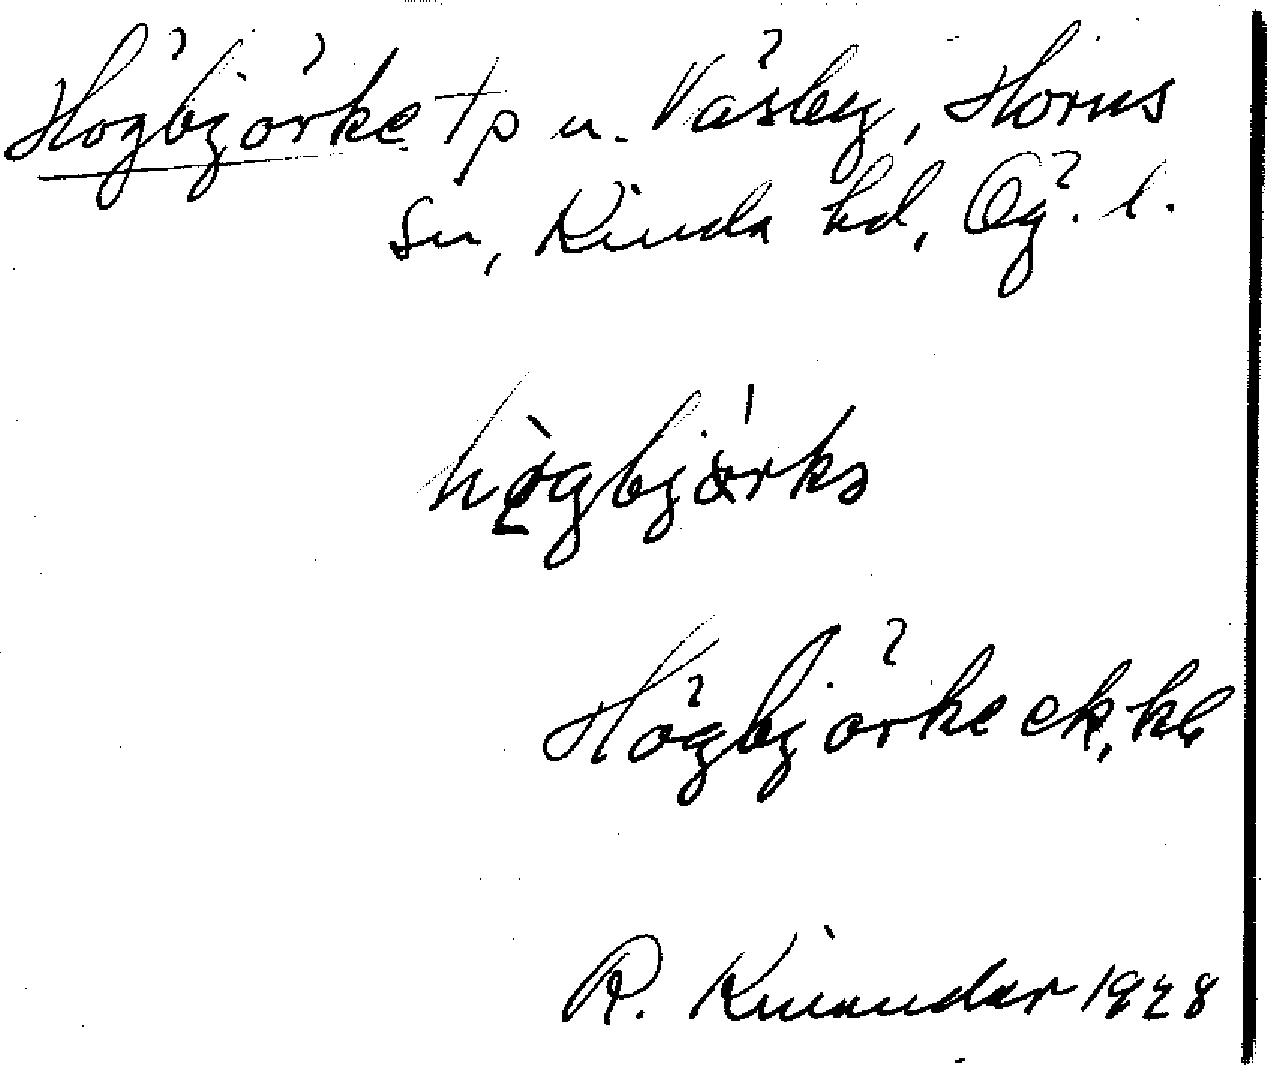 Högbjörke tp u. Väsby, Horns
sn, Kinda hd, Ög. l.
Högbjörke ek. kb
R. Kinander 1928